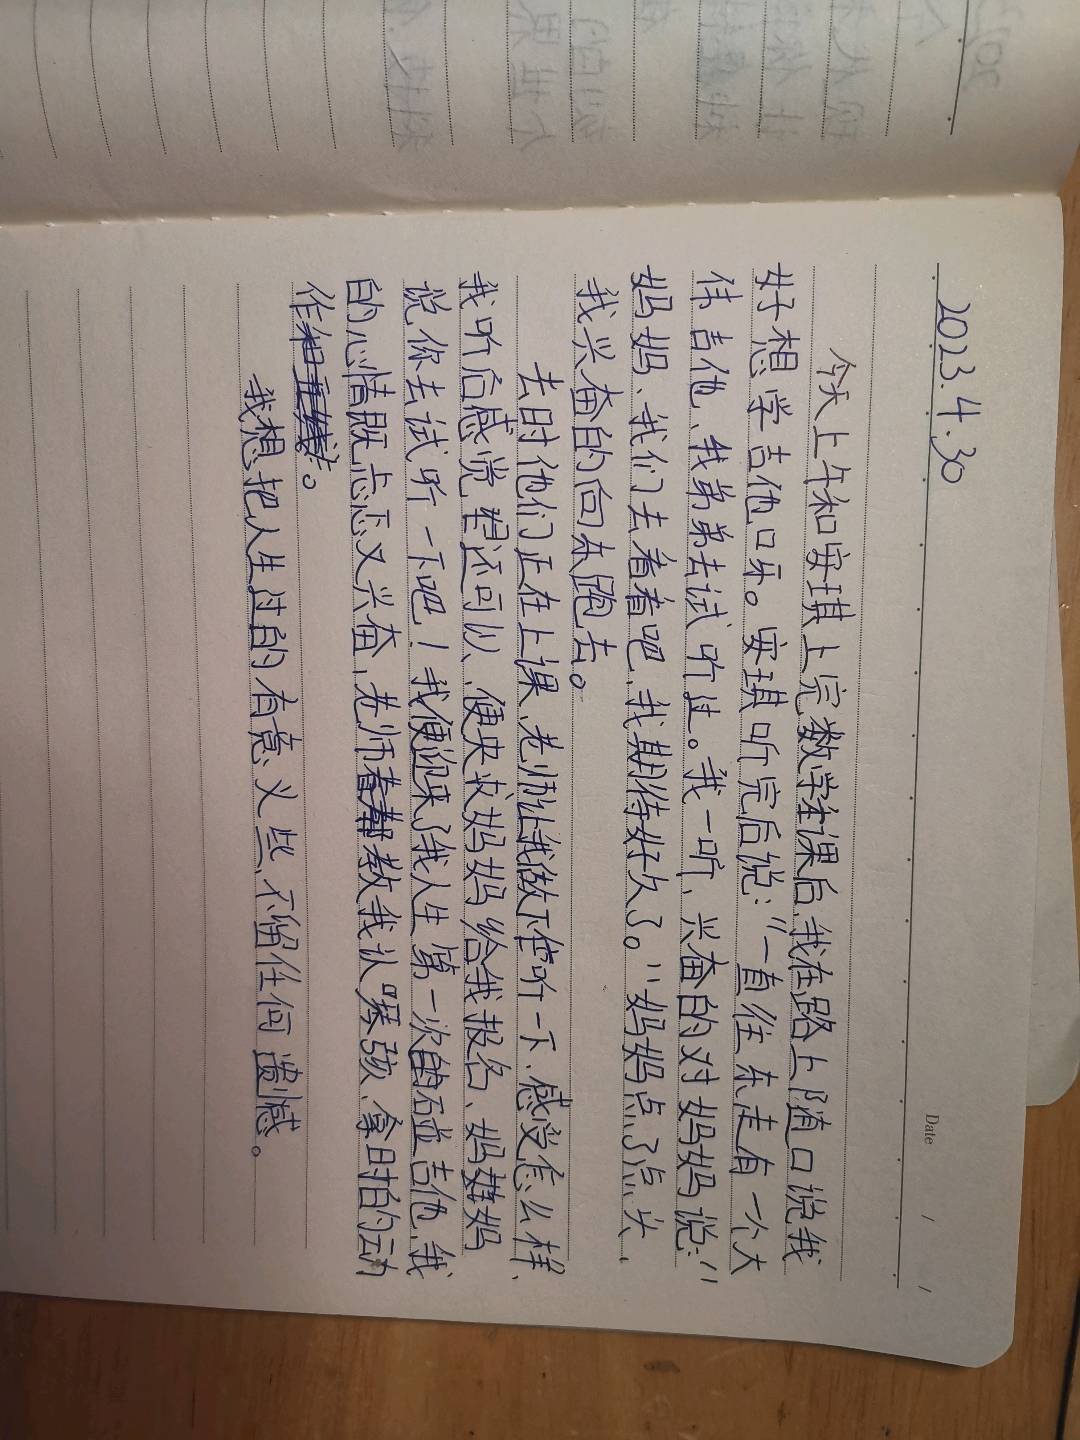 Date / /
2023.4.30
今天上午和安琪上完数学课后、我在路上随口说我
好想学吉他口牙。安琪听完后说：“一直往东走有一个大
伟吉他、我弟弟去试听过。我一听、兴奋的对妈妈说：“
妈妈、我们去看看吧、我期待好久了。”妈妈点了点头，
我兴奋的向东跑去。
去时他们正在上课、老师让我做下听一下、感受怎么样、
我听后感觉还可以、便央求妈妈给我报名、妈妈
说你去试听一下吧！我便迎来了我人生第一次的碰吉他、我
的心情既忐忑又兴奋，老师教我认弦、拿时拍的动
作和。
我想把人生过的有意义些、不留任何遗憾。